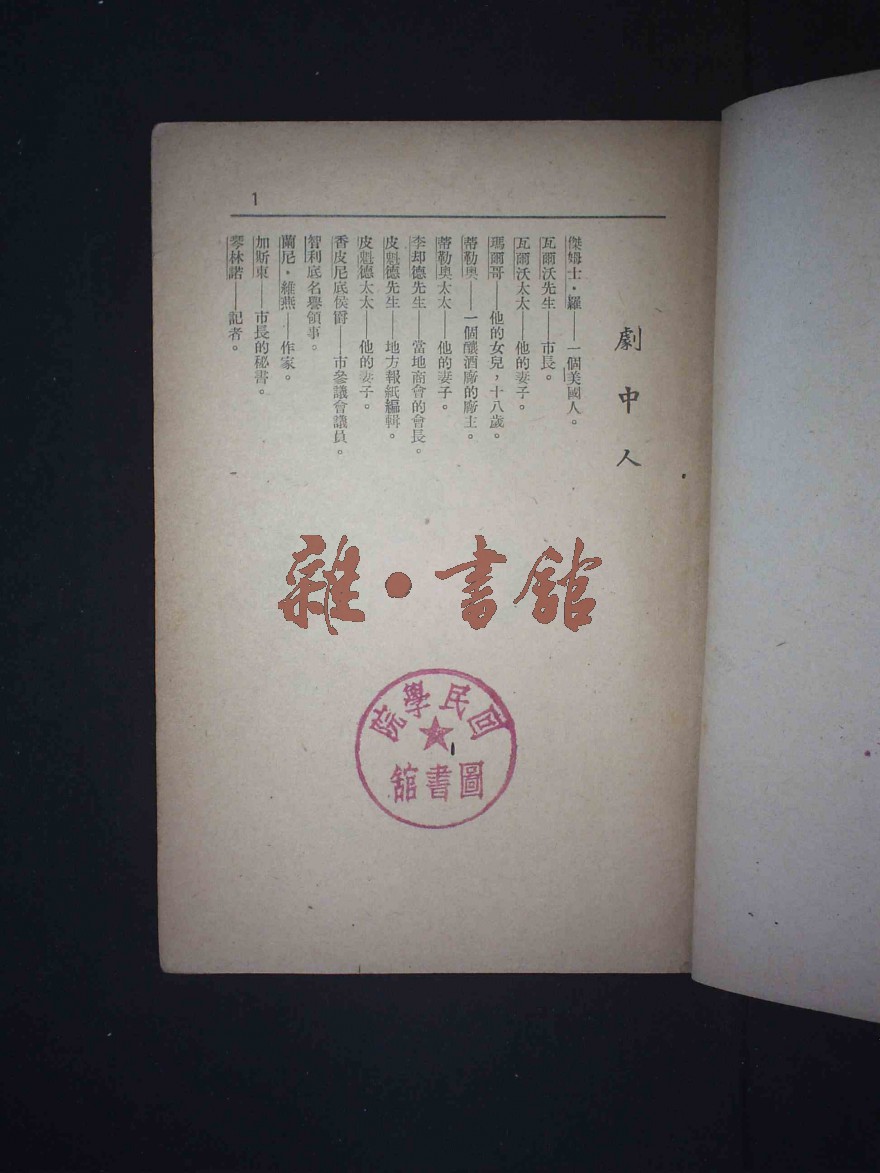 1
劇中人
傑姆士·羅——一個美國人。
瓦爾沃先生——市長。
瓦爾沃太太——他的妻子。
瑪爾哥——他的女兒，十八歲。
蒂勒奧——一個釀酒廠的廠主。
蒂勒奧太太——他的妻子。
李却德先生——當地商會的會長。
皮魁德先生——地方報紙編輯。
皮魁德太太——他的妻子。
香皮尼底侯爵——市參議會議員。
智利底名譽領事。
蘭尼·維燕——作家。
加斯東——市長的秘書。
琴林諾——記者。
雜·書館
回民學院
圖書館